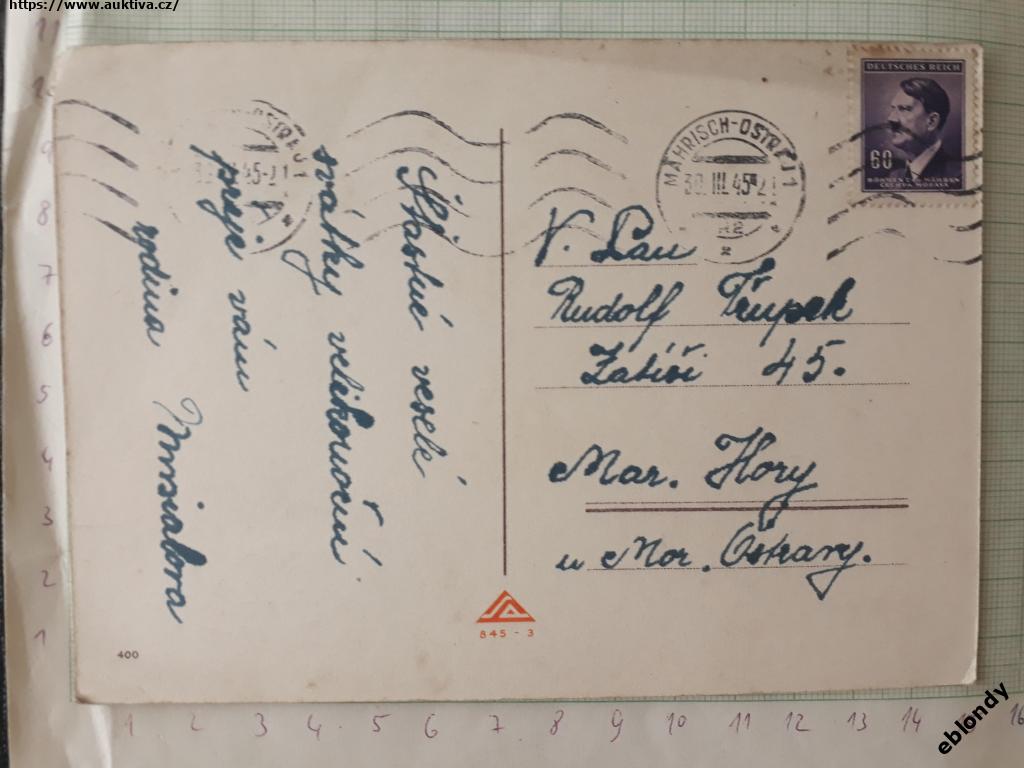 https://www.auktiva.cz/
DEUTSCHES REICH
60
BÖHMEN U. MÄHREN
ČECHY A MORAVA
MÄHRISCH-OSTRAU 1
30.III.45-21
V. Pan
Rudolf Třupek
Zátiší 45.
Mar. Hory
u Mor. Ostravy.
Šťastné veselé
svátky velikonoční
přeje vám
rodina
845 - 3
400
11
10
9
8
7
6
5
4
3
2
1
1 2 3 4 5 6 7 8 9 10 11 12 13 14 16
eblondy